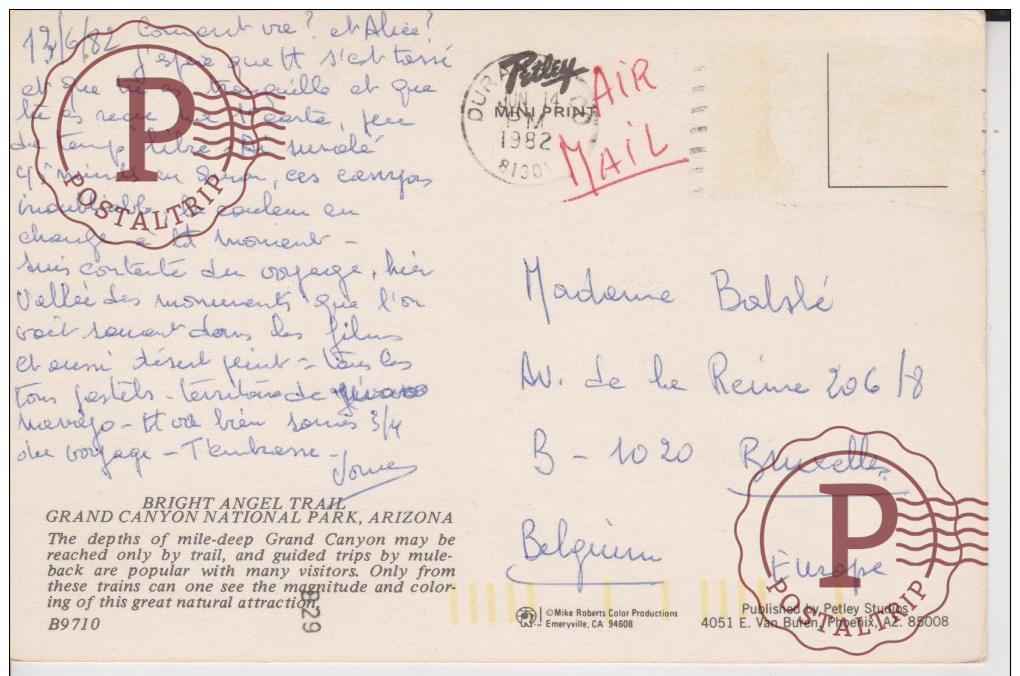 13/6/82 Comment va? et Alice?
J'espère que tt s'est tassé
et que tu es tranquille et que
tu as reçu une carte, peu
de temps libre - Ai survolé
ces canyons
inoubliable la couleur en
change à tt moment -
suis contente du voyage, hier
Vallée des monuments que l'on
voit souvent dans les films
et aussi désert peint - tous les
tons pastels - territoire de
navajo - tt va bien sommes 3/4
du voyage - T'embrasse -
BRIGHT ANGEL TRAIL
GRAND CANYON NATIONAL PARK, ARIZONA
The depths of mile-deep Grand Canyon may be
reached only by trail, and guided trips by mule-
back are popular with many visitors. Only from
these trains can one see the magnitude and color-
ing of this great natural attraction.
B9710
829
Petley
MINI PRINT
DURA CO
JUN 14
PM
1982
81301
AIR
MAIL
Madame Balslé
Av. de la Reine 206/8
B - 1020 Bruxelles
Belgium
Europe
©Mike Roberts Color Productions
Emeryville, CA 94608
Published by Petley Studios
4051 E. Van Buren, Phoenix, AZ. 85008
P
POSTALTRIP
P
POSTALTRIP